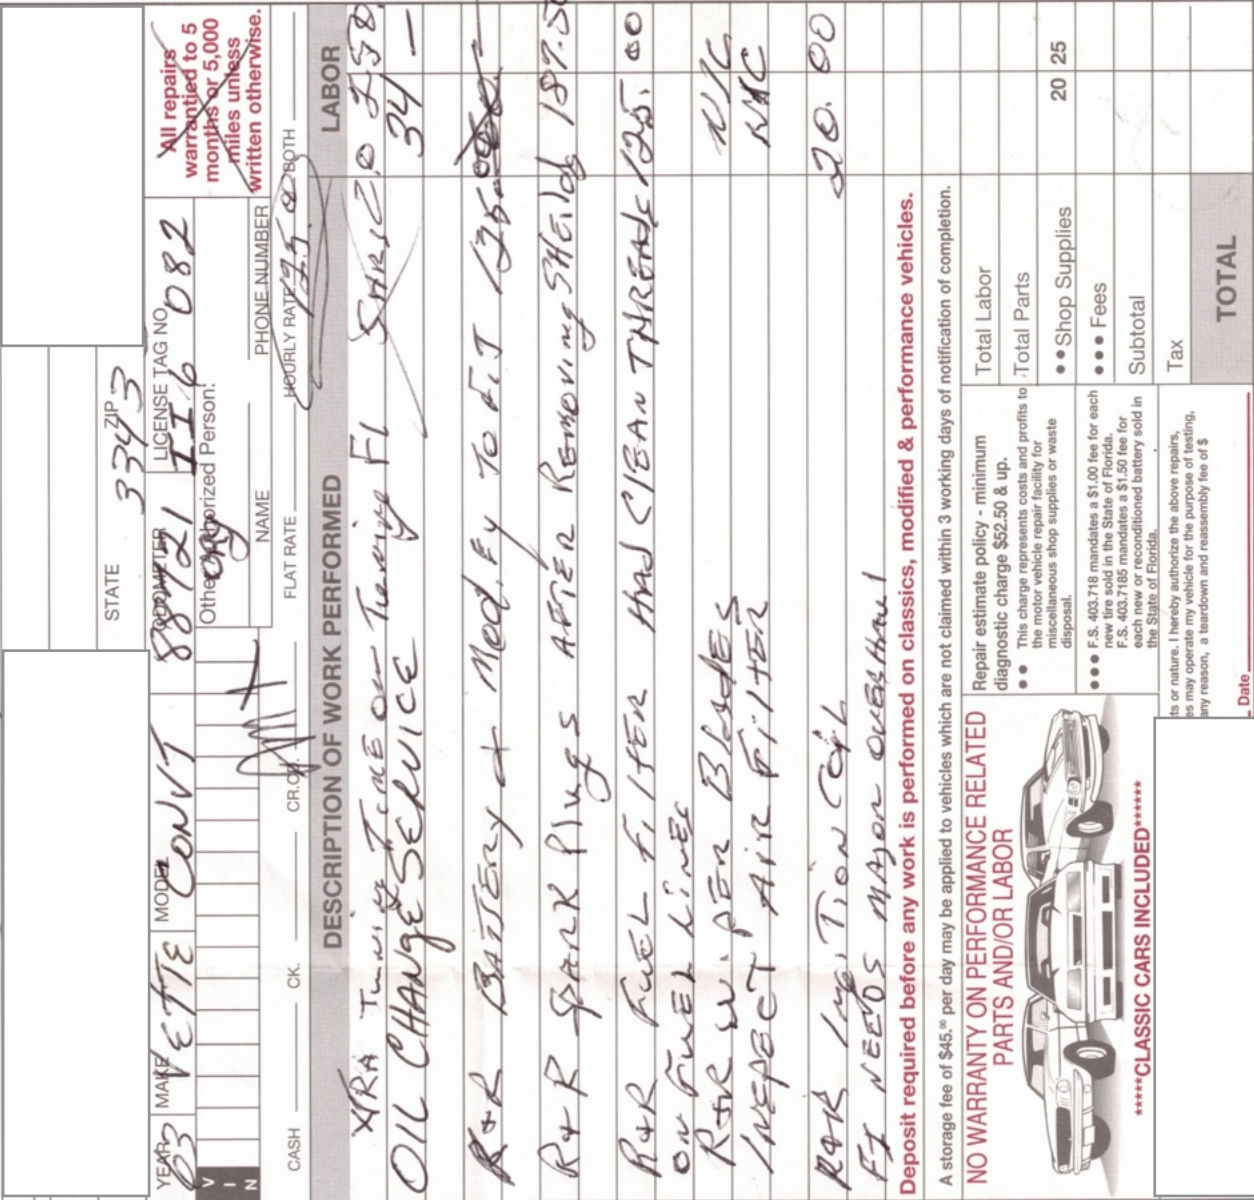 All repairs
warrantied to 5
months or 5,000
miles unless
written otherwise.
STATE ZIP 33493
YEAR 03 MAKE VETTE MODEL CONVT ODOMETER 88421 LICENSE TAG NO. II6 082
VIN
Other Authorized Person:
NAME PHONE NUMBER
CASH CK. CR.CD. FLAT RATE HOURLY RATE 125.00 BOTH
DESCRIPTION OF WORK PERFORMED LABOR
XTRA Tuning Time on Tuning FI 5HRS
OIL CHANGE SERVICE 34 —
R+R BATTERY + Modify To FIT 125.00
R+R SPARK Plugs AFTER Removing SHEilds 187.50
R+R FUEL FilTER HAD CLEAN THREADS 125.00
on FUEL LINES
R+R WiPER BLADES N/C
INSPECT AIR FilTER N/C
R+R Ignition Coil 20.00
FI NEEDS MAJOR OVERHAUL
Deposit required before any work is performed on classics, modified & performance vehicles.
A storage fee of $45.00 per day may be applied to vehicles which are not claimed within 3 working days of notification of completion.
NO WARRANTY ON PERFORMANCE RELATED
PARTS AND/OR LABOR
*****CLASSIC CARS INCLUDED*****
Repair estimate policy - minimum
diagnostic charge $52.50 & up.
•• This charge represents costs and profits to
the motor vehicle repair facility for
miscellaneous shop supplies or waste
disposal.
••• F.S. 403.718 mandates a $1.00 fee for each
new tire sold in the State of Florida.
F.S. 403.7185 mandates a $1.50 fee for
each new or reconditioned battery sold in
the State of Florida.
ts or nature. I hereby authorize the above repairs,
es may operate my vehicle for the purpose of testing,
any reason, a teardown and reassembly fee of $
Date
Total Labor
Total Parts
•• Shop Supplies 20 25
••• Fees
Subtotal
Tax
TOTAL